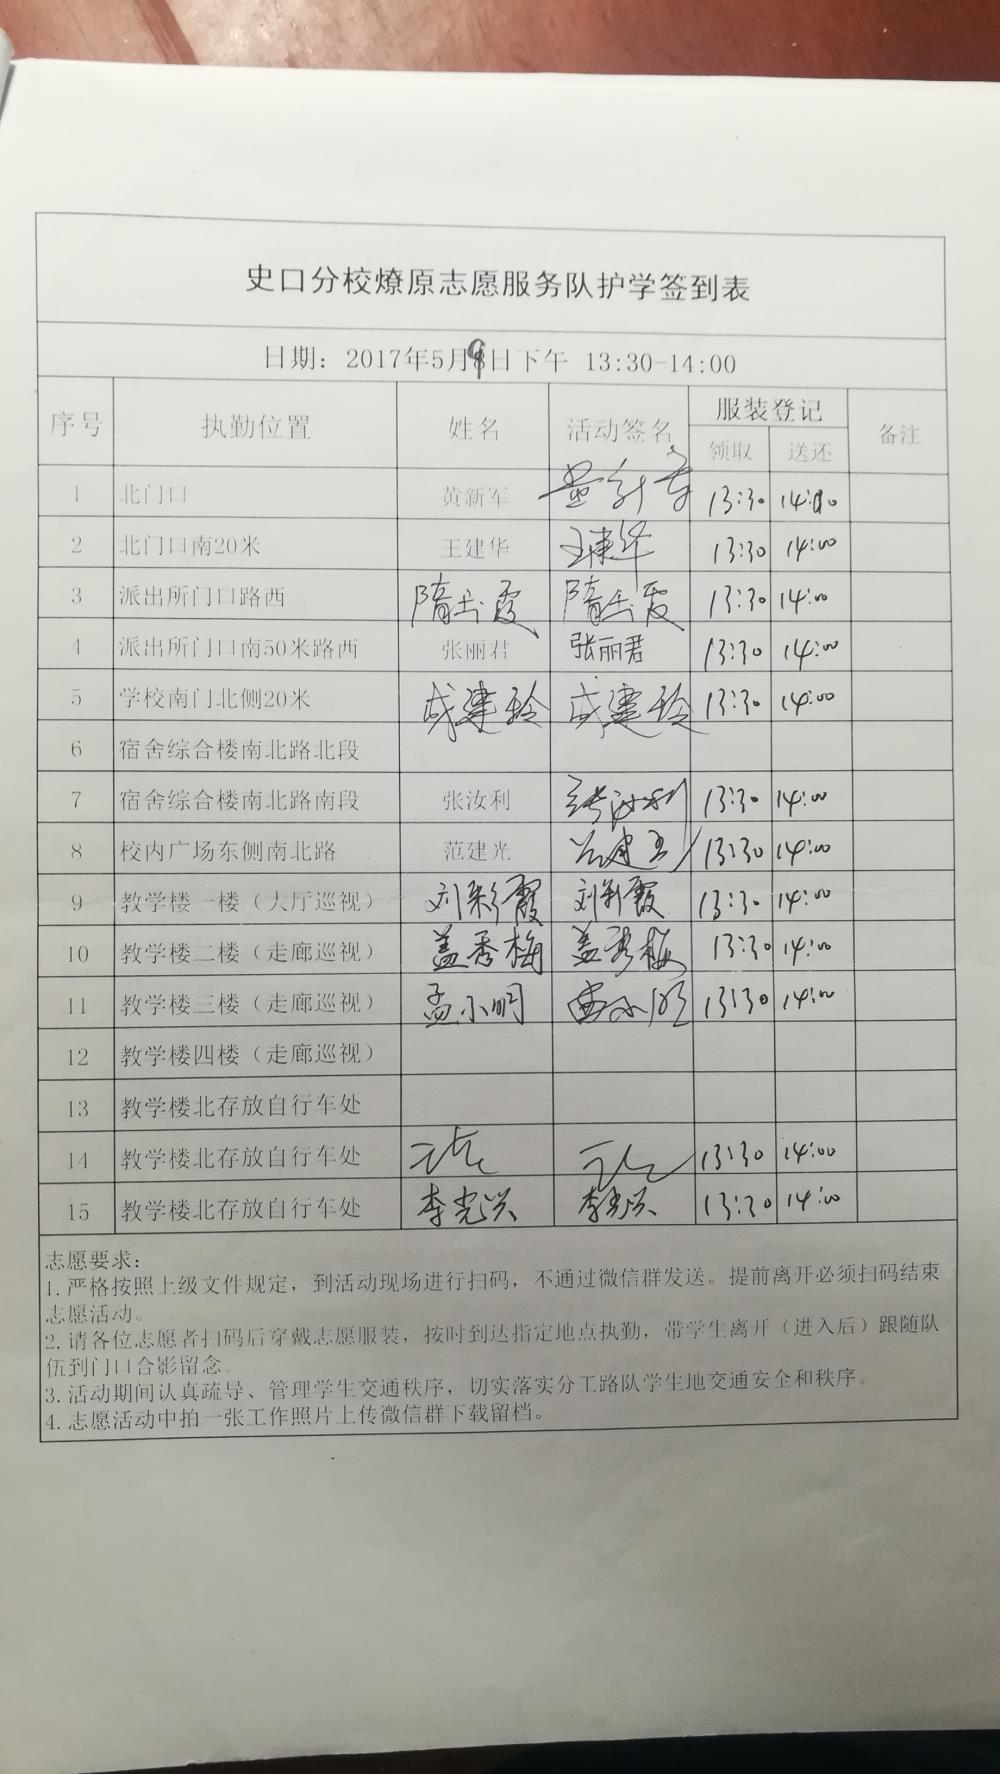 史口分校燎原志愿服务队护学签到表
日期：2017年5月9日下午 13:30-14:00
序号 执勤位置 姓名 活动签名 服装登记 备注
领取 送还
1 北门口 黄新军 黄新军 13:30 14:00
2 北门口南20米 王建华 王建华 13:30 14:00
3 派出所门口路西 隋玉霞 隋玉霞 13:30 14:00
4 派出所门口南50米路西 张丽君 张丽君 13:30 14:00
5 学校南门北侧20米 成建玲 成建玲 13:30 14:00
6 宿舍综合楼南北路北段
7 宿舍综合楼南北路南段 张汝利 张汝利 13:30 14:00
8 校内广场东侧南北路 范建光 13:30 14:00
9 教学楼一楼（大厅巡视） 刘彩霞 刘彩霞 13:30 14:00
10 教学楼二楼（走廊巡视） 盖秀梅 盖秀梅 13:30 14:00
11 教学楼三楼（走廊巡视） 孟小明 孟小明 13:30 14:00
12 教学楼四楼（走廊巡视）
13 教学楼北存放自行车处
14 教学楼北存放自行车处 13:30 14:00
15 教学楼北存放自行车处 李光兴 李光兴 13:30 14:00
志愿要求：
1.严格按照上级文件规定，到活动现场进行扫码，不通过微信群发送。提前离开必须扫码结束
志愿活动。
2.请各位志愿者扫码后穿戴志愿服装，按时到达指定地点执勤，带学生离开（进入后）跟随队
伍到门口合影留念。
3.活动期间认真疏导、管理学生交通秩序，切实落实分工路队学生地交通安全和秩序。
4.志愿活动中拍一张工作照片上传微信群下载留档。